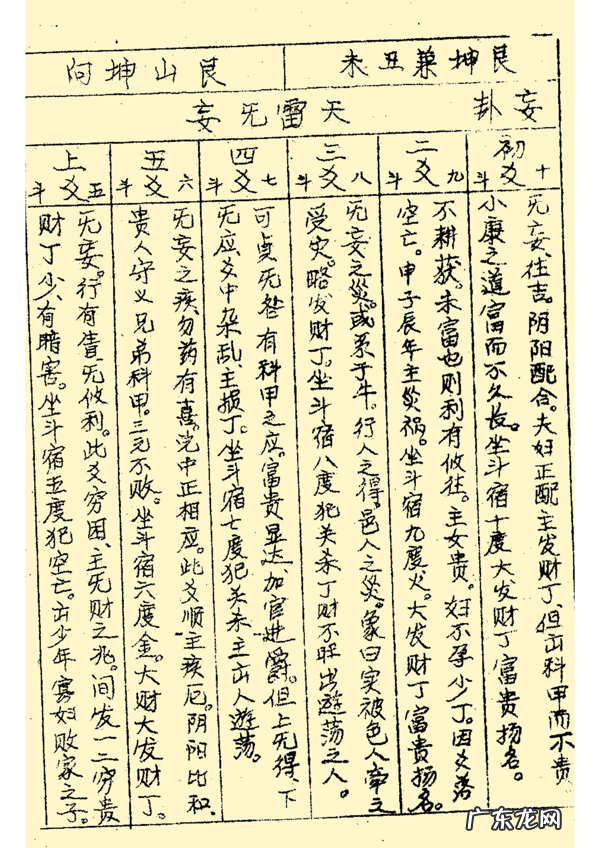 艮坤兼丑未
艮山坤向
妄卦
天雷无妄
初爻 十斗
无妄、往吉。阴阳配合。夫妇正配主发财丁、但出科甲而不贵
小康之道富而不久长。坐斗宿十度大发财丁富贵扬名。
二爻 九斗
不耕获。未富也则利有攸往。主女贵。妇不孕少丁。因爻落
空亡。申子辰年主災祸。坐斗宿九度火。大发财丁富贵扬名。
三爻 八斗
无妄之災。或系于牛。行人之得。邑人之災。象曰实被邑人牵之
受灾。略发财丁。坐斗宿八度犯关杀丁财不旺出遊荡之人。
四爻 七斗
可貞无咎有科甲之应。富贵显达、加官进爵。但上无得、下
无应爻中杂乱、主损丁。坐斗宿七度犯关杀主出人遊荡。
五爻 六斗
无妄之疾、勿药有喜。中正相应。此爻顺主疾厄。阴阳比和、
贵人守义兄弟科甲。三元不败。坐斗宿六度金。大财大发财丁。
上爻 五斗
无妄。行有眚、无攸利。此爻穷困、主无财之兆。间发一二穷贵
财丁少、有暗害。坐斗宿五度犯空亡。出少年寡妇败家之子。
广东龙网